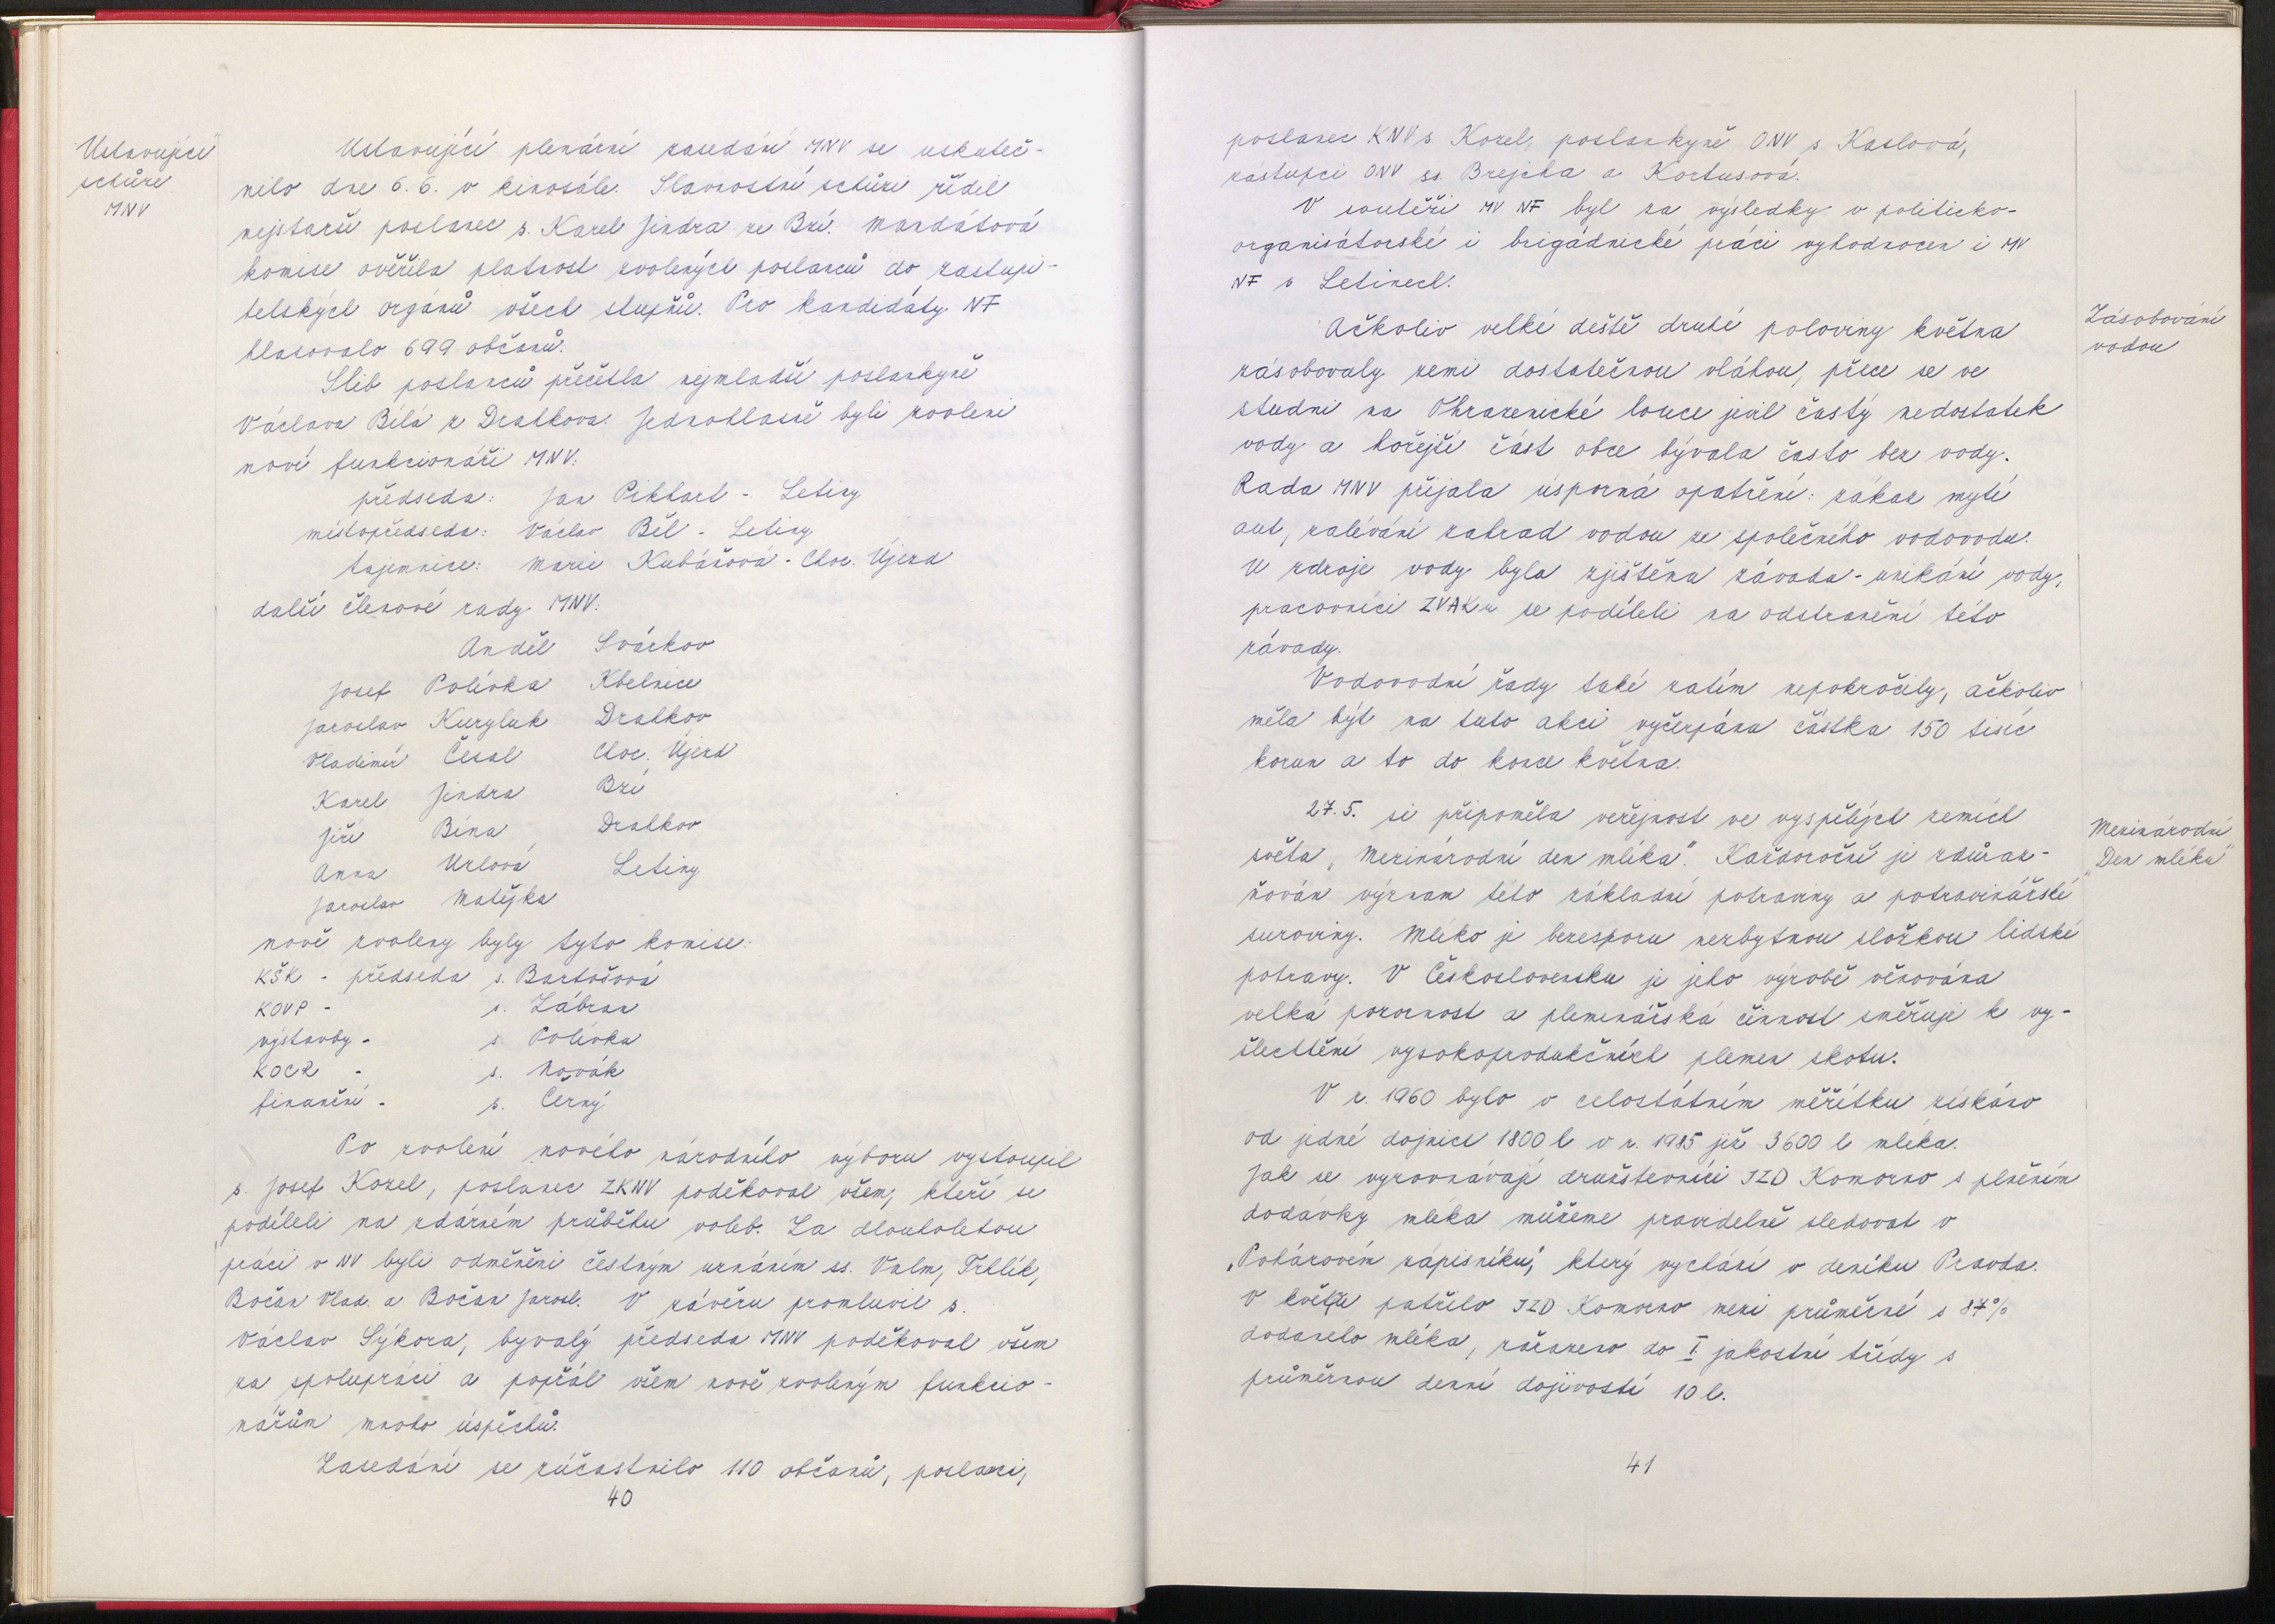 Ustavující
schůze
MNV
Ustavující plenární zasedání MNV se uskuteč-
nilo dne 6. 6. v kinosále. Slavnostní schůzi řídil
nejstarší poslanec s. Karel Jindra ze Bzí. Mandátová
komise ověřila platnost zvolených poslanců do zastupi-
telských orgánů všech stupňů. Pro kandidáty NF
hlasovalo 699 občanů.
Slib poslanců přečetla nejmladší poslankyně
Václava Bílá z Drahkova. Jednohlasně byli zvoleni
noví funkcionáři MNV:
předseda: Jan Pikhart - Letiny
místopředseda: Václav Běl - Letiny
tajemnice: Marie Kubášová - Choc. Újezd
další členové rady MNV:
Anděl Svárkov
Josef Polívka Kbelnice
Jaroslav Kuryluk Drahkov
Vladimír Česal Choc. Újezd
Karel Jindra Bzí
Jiří Bína Drahkov
Anna Urlová Letiny
Jaroslav Matějka
nově zvoleny byly tyto komise:
KŠK - předseda s. Bartošová
KOVP - s. Zábran
výstavby - s. Polívka
KOCR - s. Novák
finanční - s. Černý
Po zvolení nového národního výboru vystoupil
s. Josef Kozel, poslanec ZKNV poděkoval všem, kteří se
podíleli na zdárném průběhu voleb. Za dlouholetou
práci v NV byli odměněni čestným uznáním ss. Valm, Trhlík,
Bočan Vlad. a Bočan Jarosl. V závěru promluvil s.
Václav Sýkora, bývalý předseda MNV poděkoval všem
za spolupráci a popřál všem nově zvoleným funkcio-
nářům mnoho úspěchů.
Zasedání se zúčastnilo 110 občanů, poslanci,
40
poslanec KNV s. Kozel, poslankyně ONV s. Kaslová,
zástupci ONV ss. Brejcha a Kortusová.
V soutěži MV NF byl za výsledky v politicko-
organisátorské i brigádnické práci vyhodnocen i MV
NF v Letinech.
Zásobování
vodou
Ačkoliv velké deště druhé poloviny května
zásobovaly zemi dostatečnou vláhou, přece se ve
studni na Ohrazenické louce jevil častý nedostatek
vody a hořejší část obce bývala často bez vody.
Rada MNV přijala úsporná opatření: zákaz mytí
aut, zalévání zahrad vodou ze společného vodovodu.
U zdroje vody byla zjištěna závada - unikání vody,
pracovníci ZVAKu se podíleli na odstranění této
závady.
Vodovodní řady také zatím nepokročily, ačkoliv
měla být na tuto akci vyčerpána částka 150 tisíc
korun a to do konce května.
Mezinárodní
"Den mléka"
27. 5. si připoměla veřejnost ve vyspělých zemích
světa „Mezinárodní den mléka". Každoročně je zdůraz-
ňován význam této základní potraviny a potravinářské
suroviny. Mléko je bezesporu nezbytnou složkou lidské
potravy. V Československu je jeho výrobě věnována
velká pozornost a plemenářská činnost směřuje k vy-
šlechtění vysokoprodukčních plemen skotu.
V r. 1960 bylo v celostátním měřítku získáno
od jedné dojnice 1800 l v r. 1985 již 3600 l mléka.
Jak se vyrovnávají družstevníci JZD Komorno s plněním
dodávky mléka můžeme pravidelně sledovat v
„Pohárovém zápisníku", který vychází v deníku Pravda.
V květnu patřilo JZD Komorno mezi průměrné s 87%
dodaného mléka, zařazeno do I. jakostní třídy s
průměrnou denní dojivostí 10 l.
41